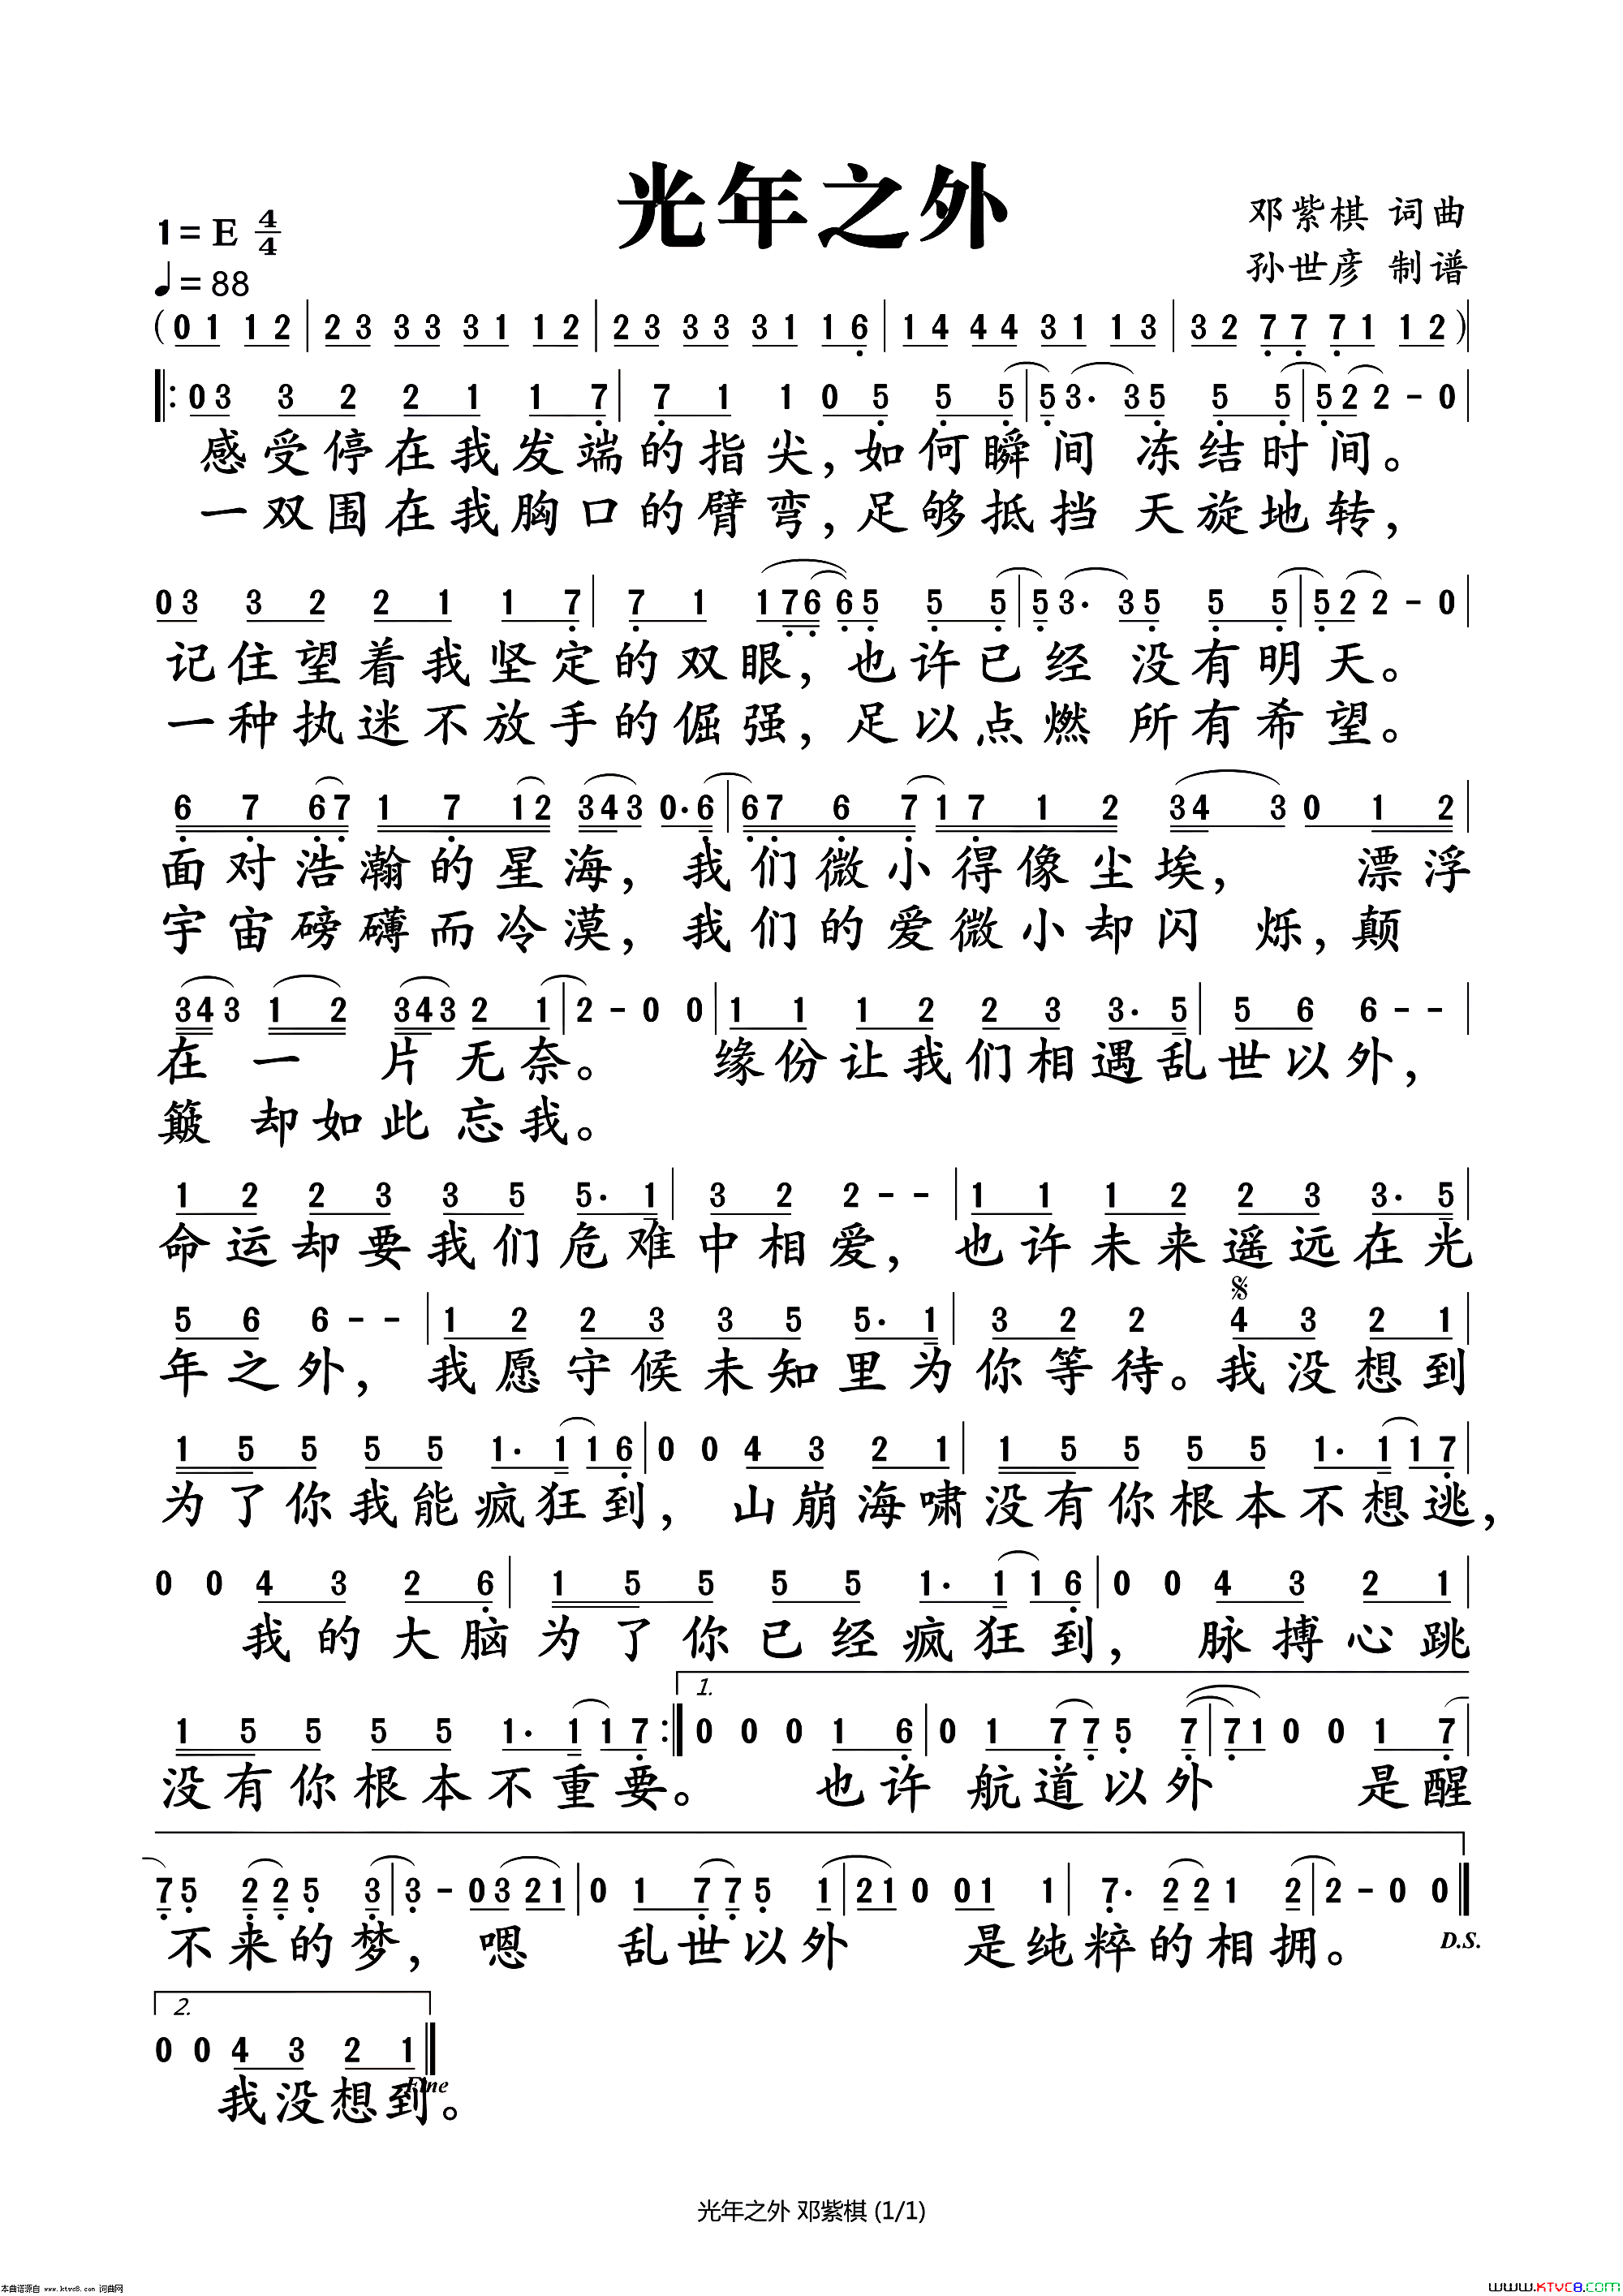 光年之外
1=E 4/4
邓紫棋 词曲
♩=88
孙世彦 制谱
(01 12|23 33 31 12|23 33 31 16|14 44 31 13|32 77 71 12)|
‖:03 3 2 2 1 1 7|7 1 1 0 5 5 5|53· 35 5 5|522-0|
感受停在我发端的指尖,如何瞬间 冻结时间。
一双围在我胸口的臂弯,足够抵挡 天旋地转,
03 3 2 2 1 1 7|7 1 176 65 5 5|53· 35 5 5|522-0|
记住望着我坚定的双眼,也许已经 没有明天。
一种执迷不放手的倔强,足以点燃 所有希望。
6 7 67 1 7 12 343 0·6|67 6 7 17 1 2 34 3 0 1 2|
面对浩瀚的星海,我们微小得像尘埃, 漂浮
宇宙磅礴而冷漠,我们的爱微小却闪 烁,颠
343 1 2 343 2 1|2-0 0|1 1 1 2 2 3 3·5|5 6 6--|
在 一 片 无奈。 缘份让我们相遇乱世以外,
簸 却如此忘我。
1 2 2 3 3 5 5·1|3 2 2--|1 1 1 2 2 3 3·5|
命运却要我们危难中相爱,也许未来遥远在光
𝄋
5 6 6--|1 2 2 3 3 5 5·1|3 2 2 4 3 2 1|
年之外,我愿守候未知里为你等待。我没想到
1 5 5 5 5 1·1 16|0 0 4 3 2 1|1 5 5 5 5 1·1 17|
为了你我能疯狂到,山崩海啸没有你根本不想逃,
0 0 4 3 2 6|1 5 5 5 5 1·1 16|0 0 4 3 2 1|
我的大脑为了你已经疯狂到,脉搏心跳
1.
1 5 5 5 5 1·1 17:‖0 0 0 1 6|0 1 77 5 7|71 0 0 1 7|
没有你根本不重要。 也许 航道以外 是醒
75 22 5 3|3-03 21|0 1 77 5 1|21 0 01 1|7· 22 1 2|2-0 0‖
不来的梦, 嗯 乱世以外 是纯粹的相拥。
D.S.
2.
0 0 4 3 2 1‖
Fine
我没想到。
光年之外 邓紫棋 (1/1)
本曲谱源自 www.ktvc8.com 词曲网
WWW.KTVC8.COM